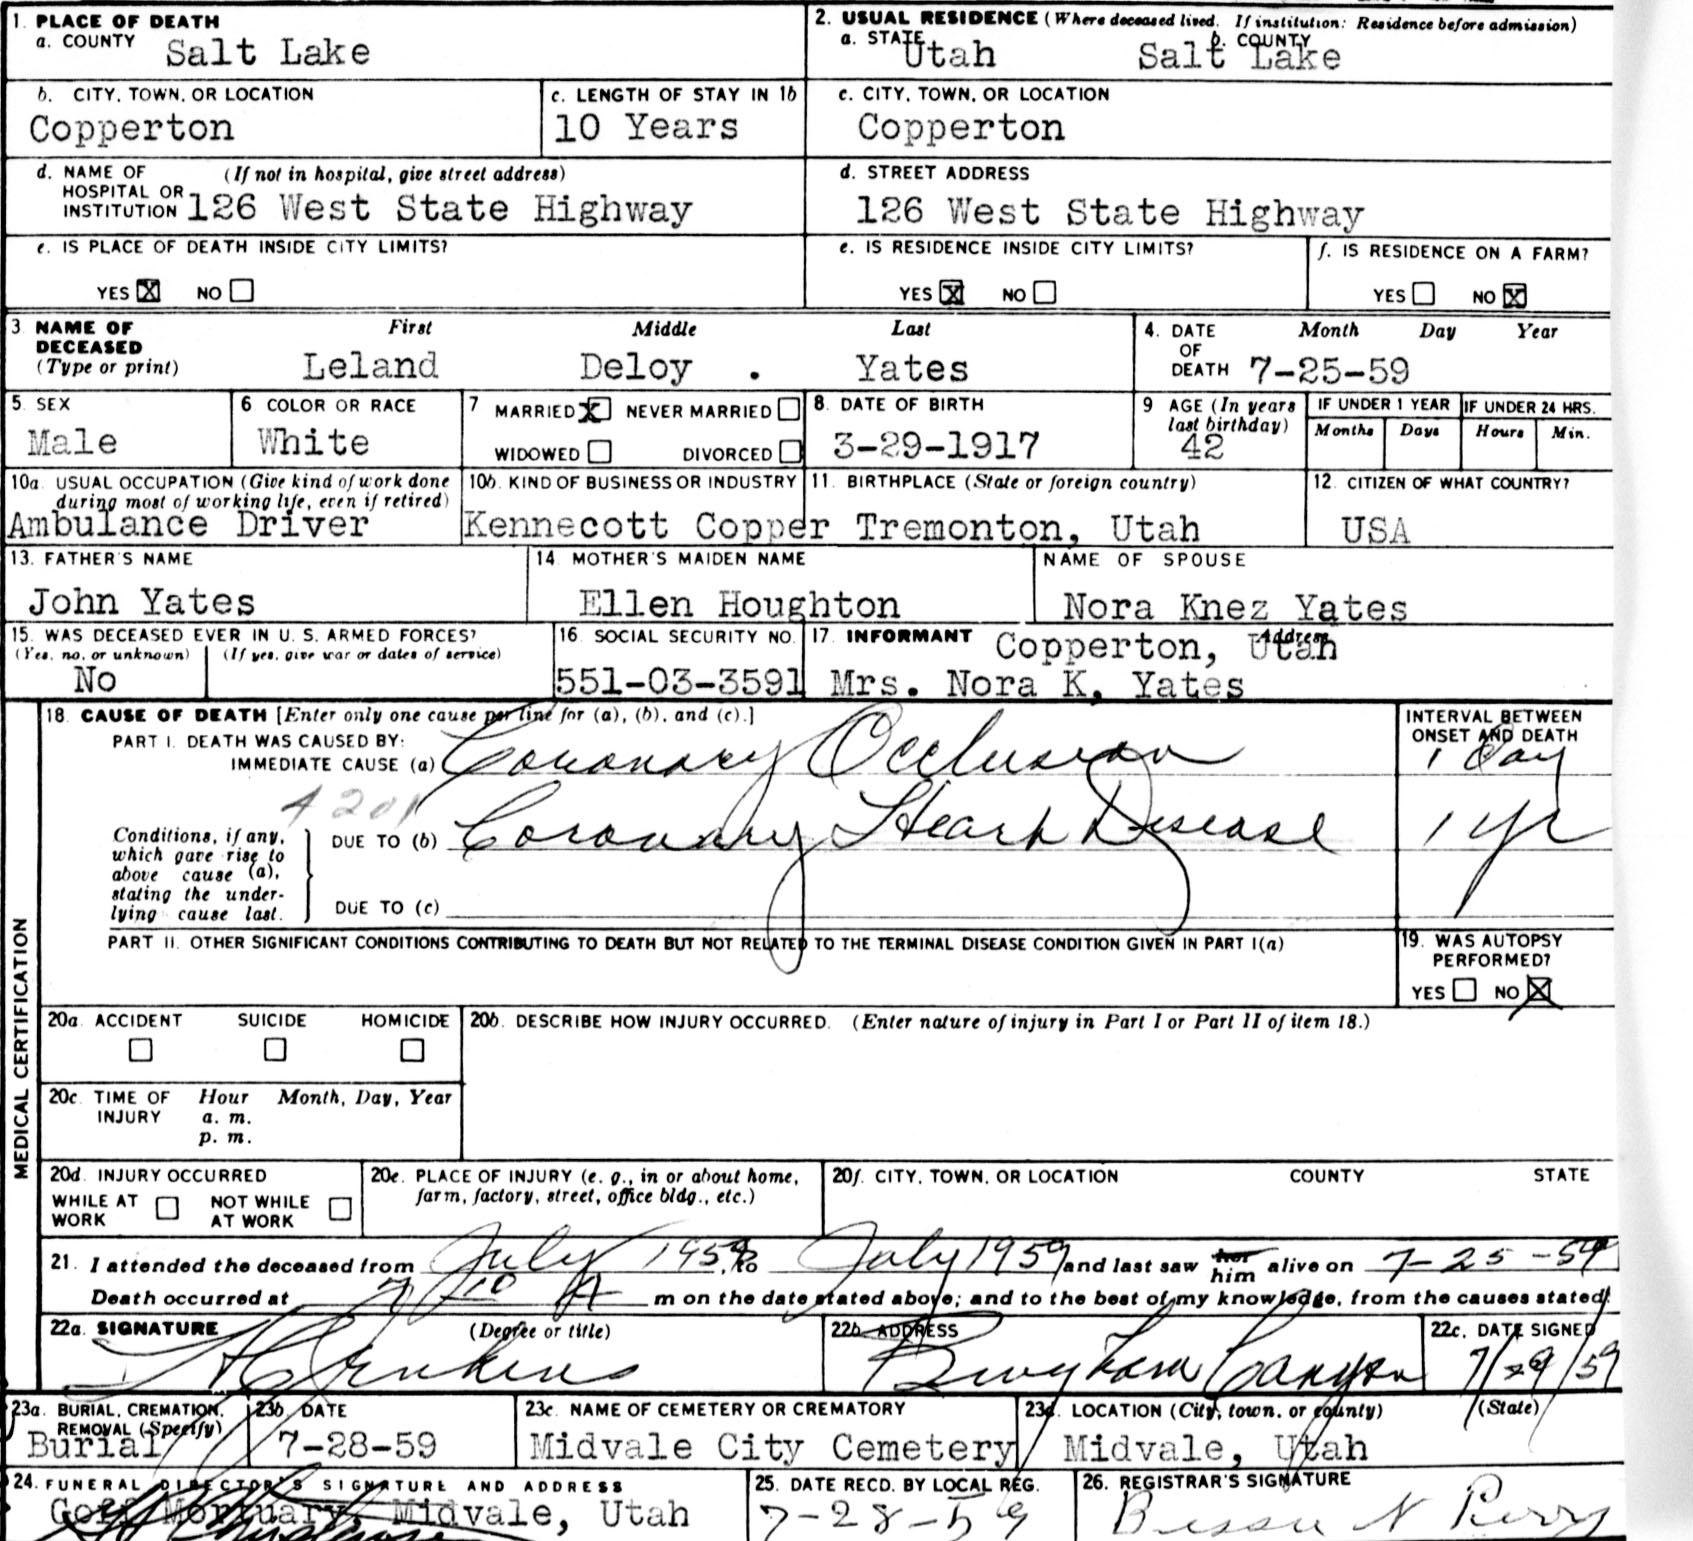 1. PLACE OF DEATH
a. COUNTY Salt Lake
2. USUAL RESIDENCE (Where deceased lived. If institution: Residence before admission)
a. STATE Utah b. COUNTY Salt Lake
b. CITY, TOWN, OR LOCATION
Copperton
c. LENGTH OF STAY IN 1b
10 Years
c. CITY, TOWN, OR LOCATION
Copperton
d. NAME OF HOSPITAL OR INSTITUTION (If not in hospital, give street address)
126 West State Highway
d. STREET ADDRESS
126 West State Highway
e. IS PLACE OF DEATH INSIDE CITY LIMITS?
YES X NO
e. IS RESIDENCE INSIDE CITY LIMITS?
YES X NO
f. IS RESIDENCE ON A FARM?
YES NO X
3. NAME OF DECEASED (Type or print)
First Middle Last
Leland Deloy . Yates
4. DATE OF DEATH Month Day Year
7-25-59
5. SEX
Male
6 COLOR OR RACE
White
7 MARRIED X NEVER MARRIED
WIDOWED DIVORCED
8. DATE OF BIRTH
3-29-1917
9 AGE (In years last birthday)
42
IF UNDER 1 YEAR
Months Days
IF UNDER 24 HRS.
Hours Min.
10a. USUAL OCCUPATION (Give kind of work done during most of working life, even if retired)
Ambulance Driver
10b. KIND OF BUSINESS OR INDUSTRY
Kennecott Copper
11. BIRTHPLACE (State or foreign country)
Tremonton, Utah
12. CITIZEN OF WHAT COUNTRY?
USA
13. FATHER'S NAME
John Yates
14. MOTHER'S MAIDEN NAME
Ellen Houghton
NAME OF SPOUSE
Nora Knez Yates
15. WAS DECEASED EVER IN U. S. ARMED FORCES?
(Yes, no, or unknown) (If yes, give war or dates of service)
No
16. SOCIAL SECURITY NO.
551-03-3591
17. INFORMANT Address
Copperton, Utah
Mrs. Nora K. Yates
MEDICAL CERTIFICATION
18. CAUSE OF DEATH [Enter only one cause per line for (a), (b), and (c).]
PART I. DEATH WAS CAUSED BY:
IMMEDIATE CAUSE (a) Coronary Occlusion
INTERVAL BETWEEN ONSET AND DEATH
1 day
4201
Conditions, if any, which gave rise to above cause (a), stating the underlying cause last.
DUE TO (b) Coronary Heart Disease
1 yr
DUE TO (c)
PART II. OTHER SIGNIFICANT CONDITIONS CONTRIBUTING TO DEATH BUT NOT RELATED TO THE TERMINAL DISEASE CONDITION GIVEN IN PART I(a)
19. WAS AUTOPSY PERFORMED?
YES NO X
20a. ACCIDENT SUICIDE HOMICIDE
20b. DESCRIBE HOW INJURY OCCURRED. (Enter nature of injury in Part I or Part II of item 18.)
20c. TIME OF INJURY Hour Month, Day, Year
a. m.
p. m.
20d. INJURY OCCURRED
WHILE AT WORK NOT WHILE AT WORK
20e. PLACE OF INJURY (e. g., in or about home, farm, factory, street, office bldg., etc.)
20f. CITY, TOWN, OR LOCATION COUNTY STATE
21. I attended the deceased from July 1959, to July 1959 and last saw her him alive on 7-25-59
Death occurred at 7 10 A m on the date stated above; and to the best of my knowledge, from the causes stated.
22a. SIGNATURE (Degree or title)
Jenkins
22b. ADDRESS
Bingham Canyon
22c. DATE SIGNED
7/29/59
23a. BURIAL, CREMATION, REMOVAL (Specify)
Burial
23b. DATE
7-28-59
23c. NAME OF CEMETERY OR CREMATORY
Midvale City Cemetery
23d. LOCATION (City, town, or county) (State)
Midvale, Utah
24. FUNERAL DIRECTOR'S SIGNATURE AND ADDRESS
Goff Mortuary, Midvale, Utah
25. DATE RECD. BY LOCAL REG.
7-28-59
26. REGISTRAR'S SIGNATURE
Bessie N Perry